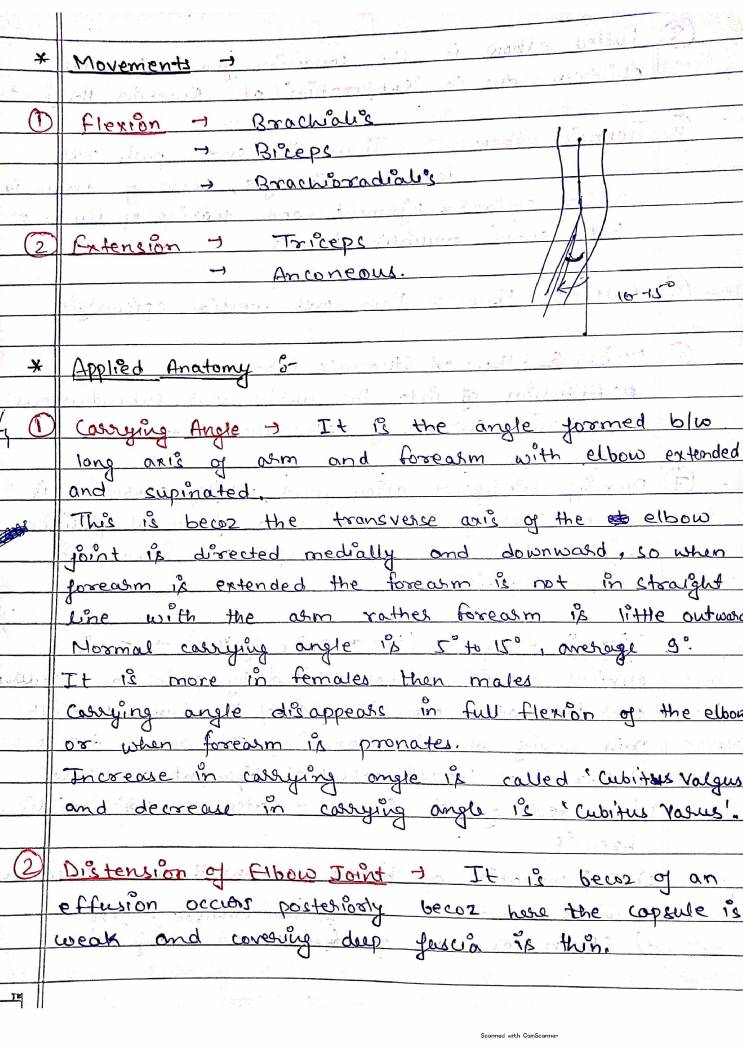 * Movements →
① Flexion → Brachialis
→ Biceps
→ Brachioradialis
② Extension → Triceps
→ Anconeous.
10-15°
* Applied Anatomy :-
① Carrying Angle → It is the angle formed b/w
long axis of arm and forearm with elbow extended
and supinated.
This is becoz the transverse axis of the elbow
joint is directed medially and downward, so when
forearm is extended the forearm is not in straight
line with the arm rather forearm is little outward
Normal carrying angle is 5° to 15°, average 9°.
It is more in females then males
Carrying angle disappears in full flexion of the elbow
or when forearm is pronates.
Increase in carrying angle is called 'Cubitus Valgus
and decrease in carrying angle is 'Cubitus Varus'.
② Distension of Elbow Joint → It is becoz of an
effusion occurs posteriorly becoz here the capsule is
weak and covering deep fascia is thin.
Scanned with CamScanner